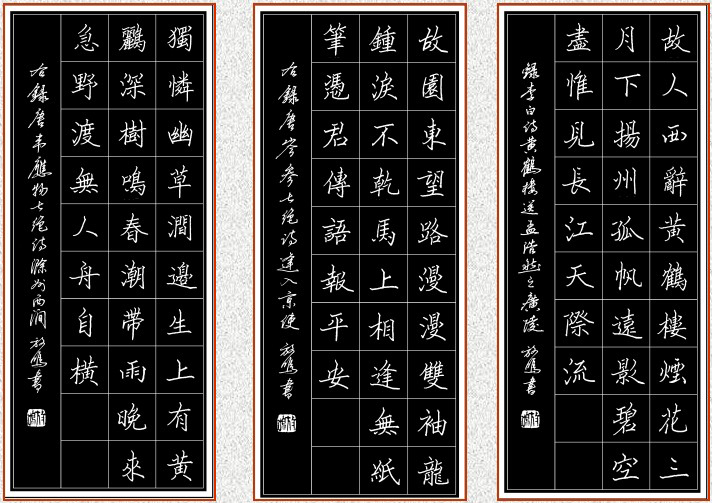 故人西辭黃鶴樓煙花三
月下揚州孤帆遠影碧空
盡惟見長江天際流
錄李白詩黃鶴樓送孟浩然之廣陵 書
故園東望路漫漫雙袖龍
鍾淚不乾馬上相逢無紙
筆憑君傳語報平安
錄唐岑參七絕詩逢入京使 書
獨憐幽草澗邊生上有黃
鸝深樹鳴春潮帶雨晚來
急野渡無人舟自橫
錄唐韋應物七絕詩滁州西澗 書